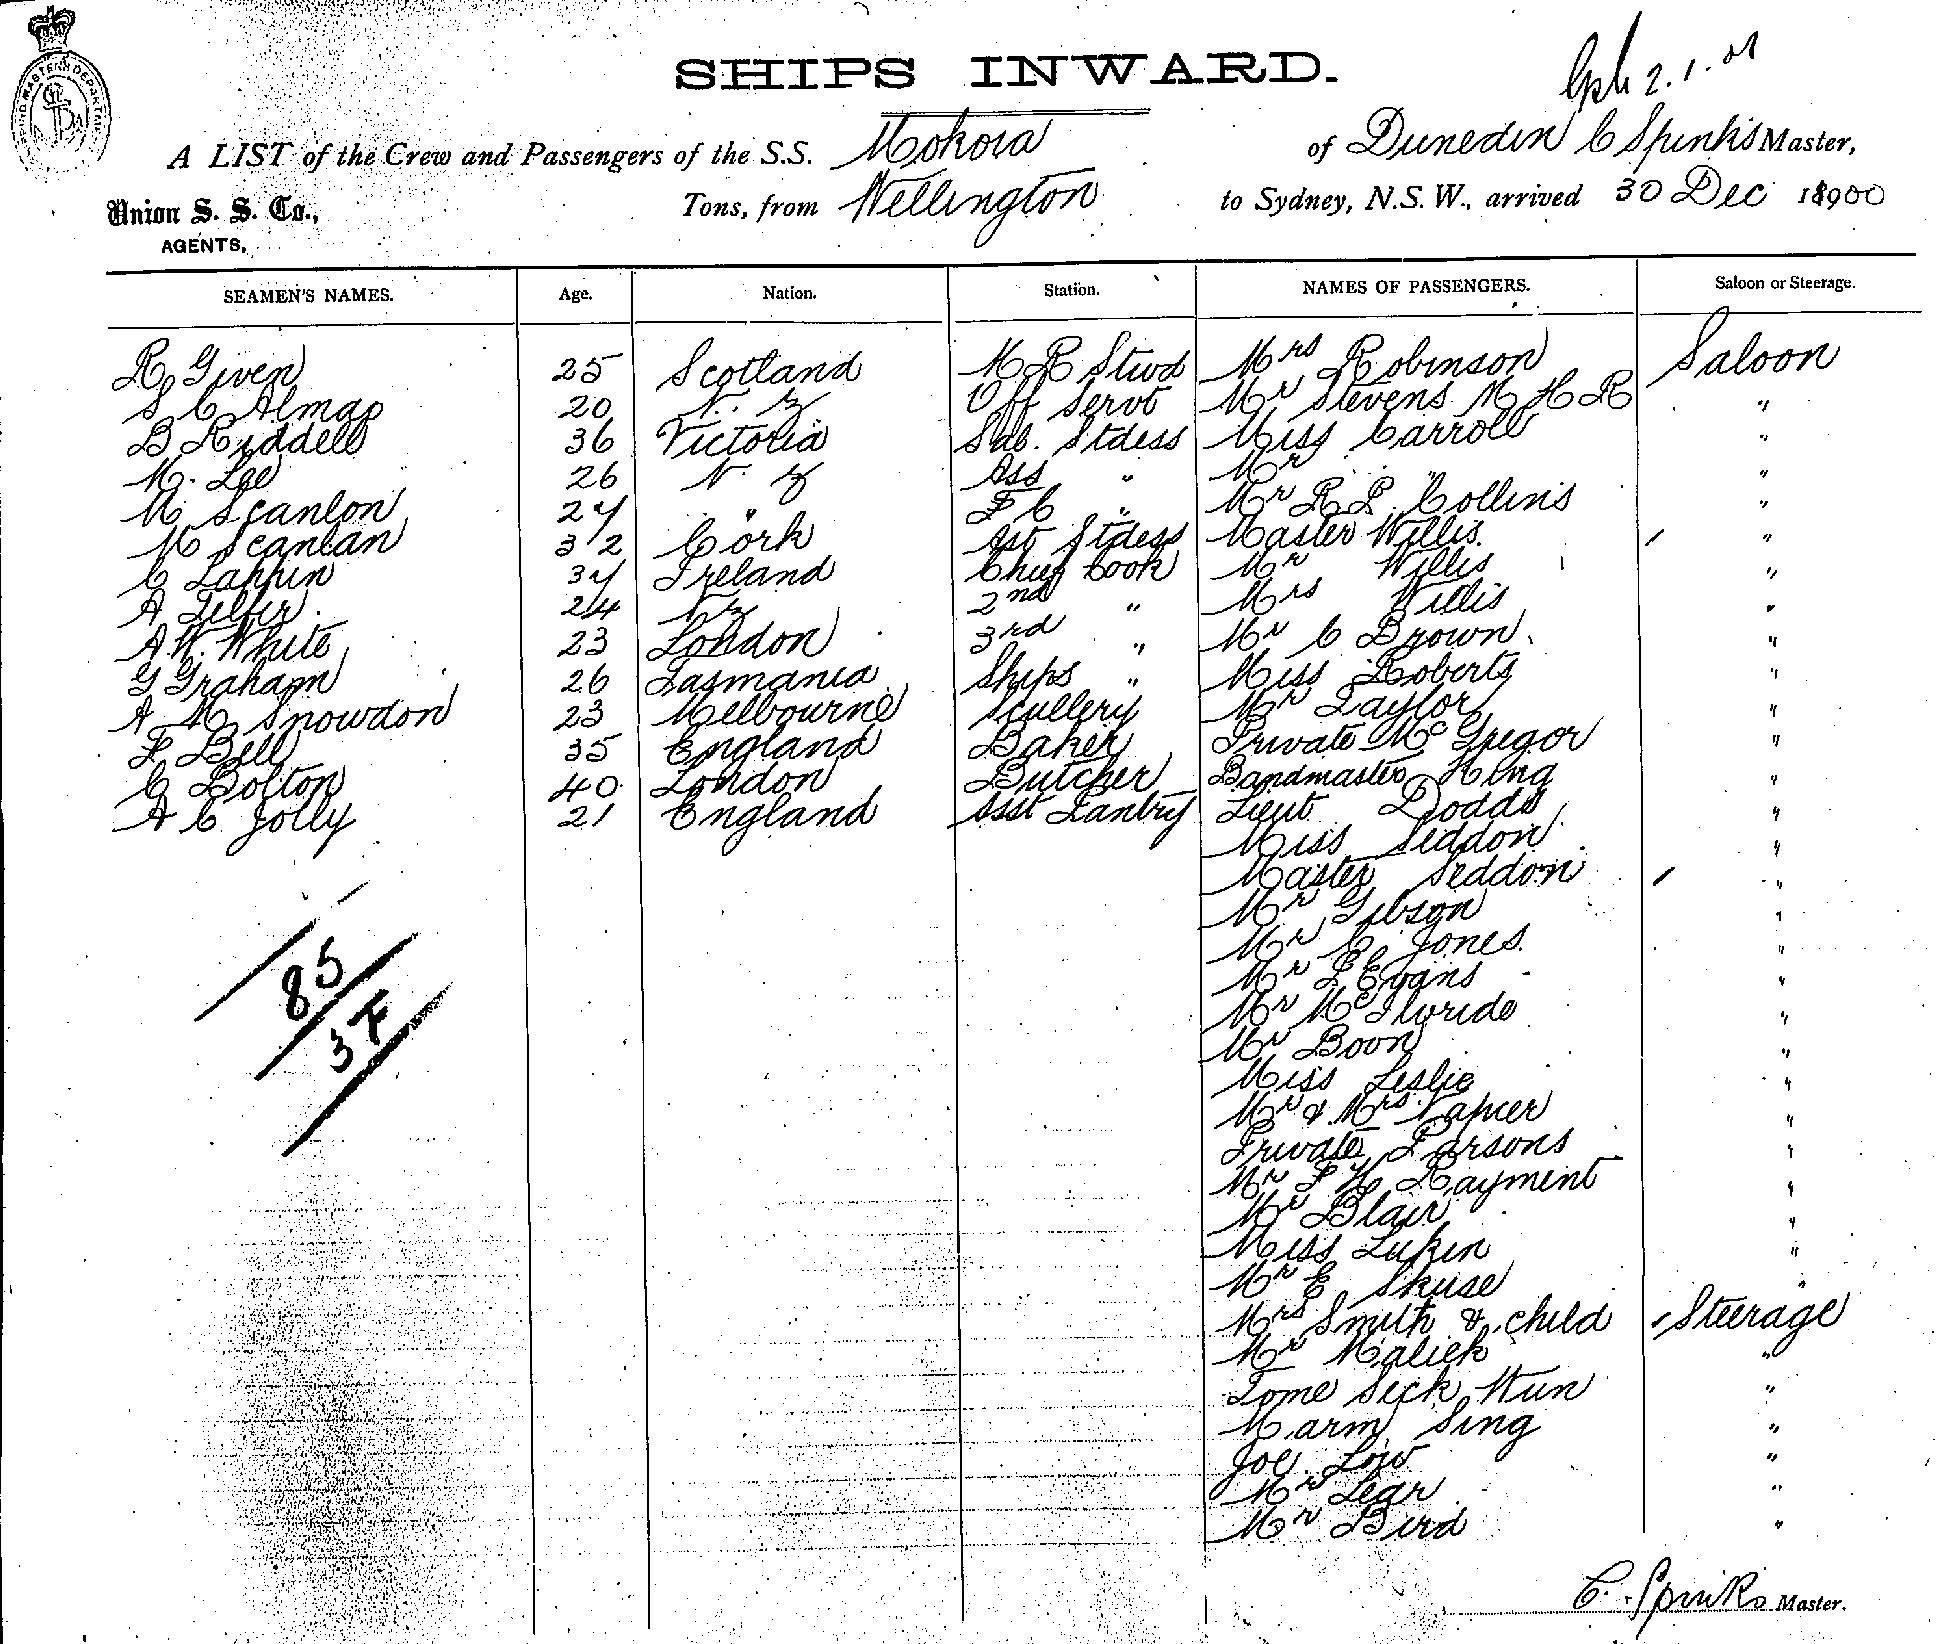 SHIPS INWARD.
2.1.01
A LIST of the Crew and Passengers of the S.S. Mokoia of Dunedin C Spinks Master,
Union S. S. Co., AGENTS, Tons, from Wellington to Sydney, N.S.W., arrived 30 Dec 18900
SEAMEN'S NAMES. Age. Nation. Station. NAMES OF PASSENGERS. Saloon or Steerage.
R Given 25 Scotland M R Stwd Mrs Robinson Saloon
S C Almao 20 N. Z Off Servt Mr Stevens M H R "
B Riddell 36 Victoria Sal. Stdess Miss Carroll "
M. Lee 26 N. Z Ass " Mr " "
M Scanlon 27 " F C " Mr R P Collins "
M Scanlan 32 Cork Ast Stdess Master Willis "
C Lappin 37 Ireland Chief Cook Mr Willis "
A Telfer. 24 NZ 2nd " Mrs Willis "
A W. White 23 London 3rd " Mr C Brown "
G Graham 26 Tasmania Ships " Miss Roberts "
A M Snowdon 23 Melbourne Scullery Mr Taylor "
F Bell 35 England Baker Private McGregor "
C Bolton 40 London Butcher Bandmaster King "
A C Jolly 21 England Asst Pantry Lieut Dodds "
Miss Seddon "
Master Seddon "
Mr Gibson "
Mr C Jones. "
Mr P Evans "
Mr "
Mr Boon "
Miss Leslie "
Mr & Mrs Napier "
Private Parsons "
Mr F W Rayment "
Mr Blair "
Miss Luken "
Mr E Skuse "
Mrs Smith & child Steerage
Mr Malick "
Tome Sick Wun "
Marm Sing "
Joe Low "
Mr Lear "
Mr Bird "
85
37
C. Spinks Master.